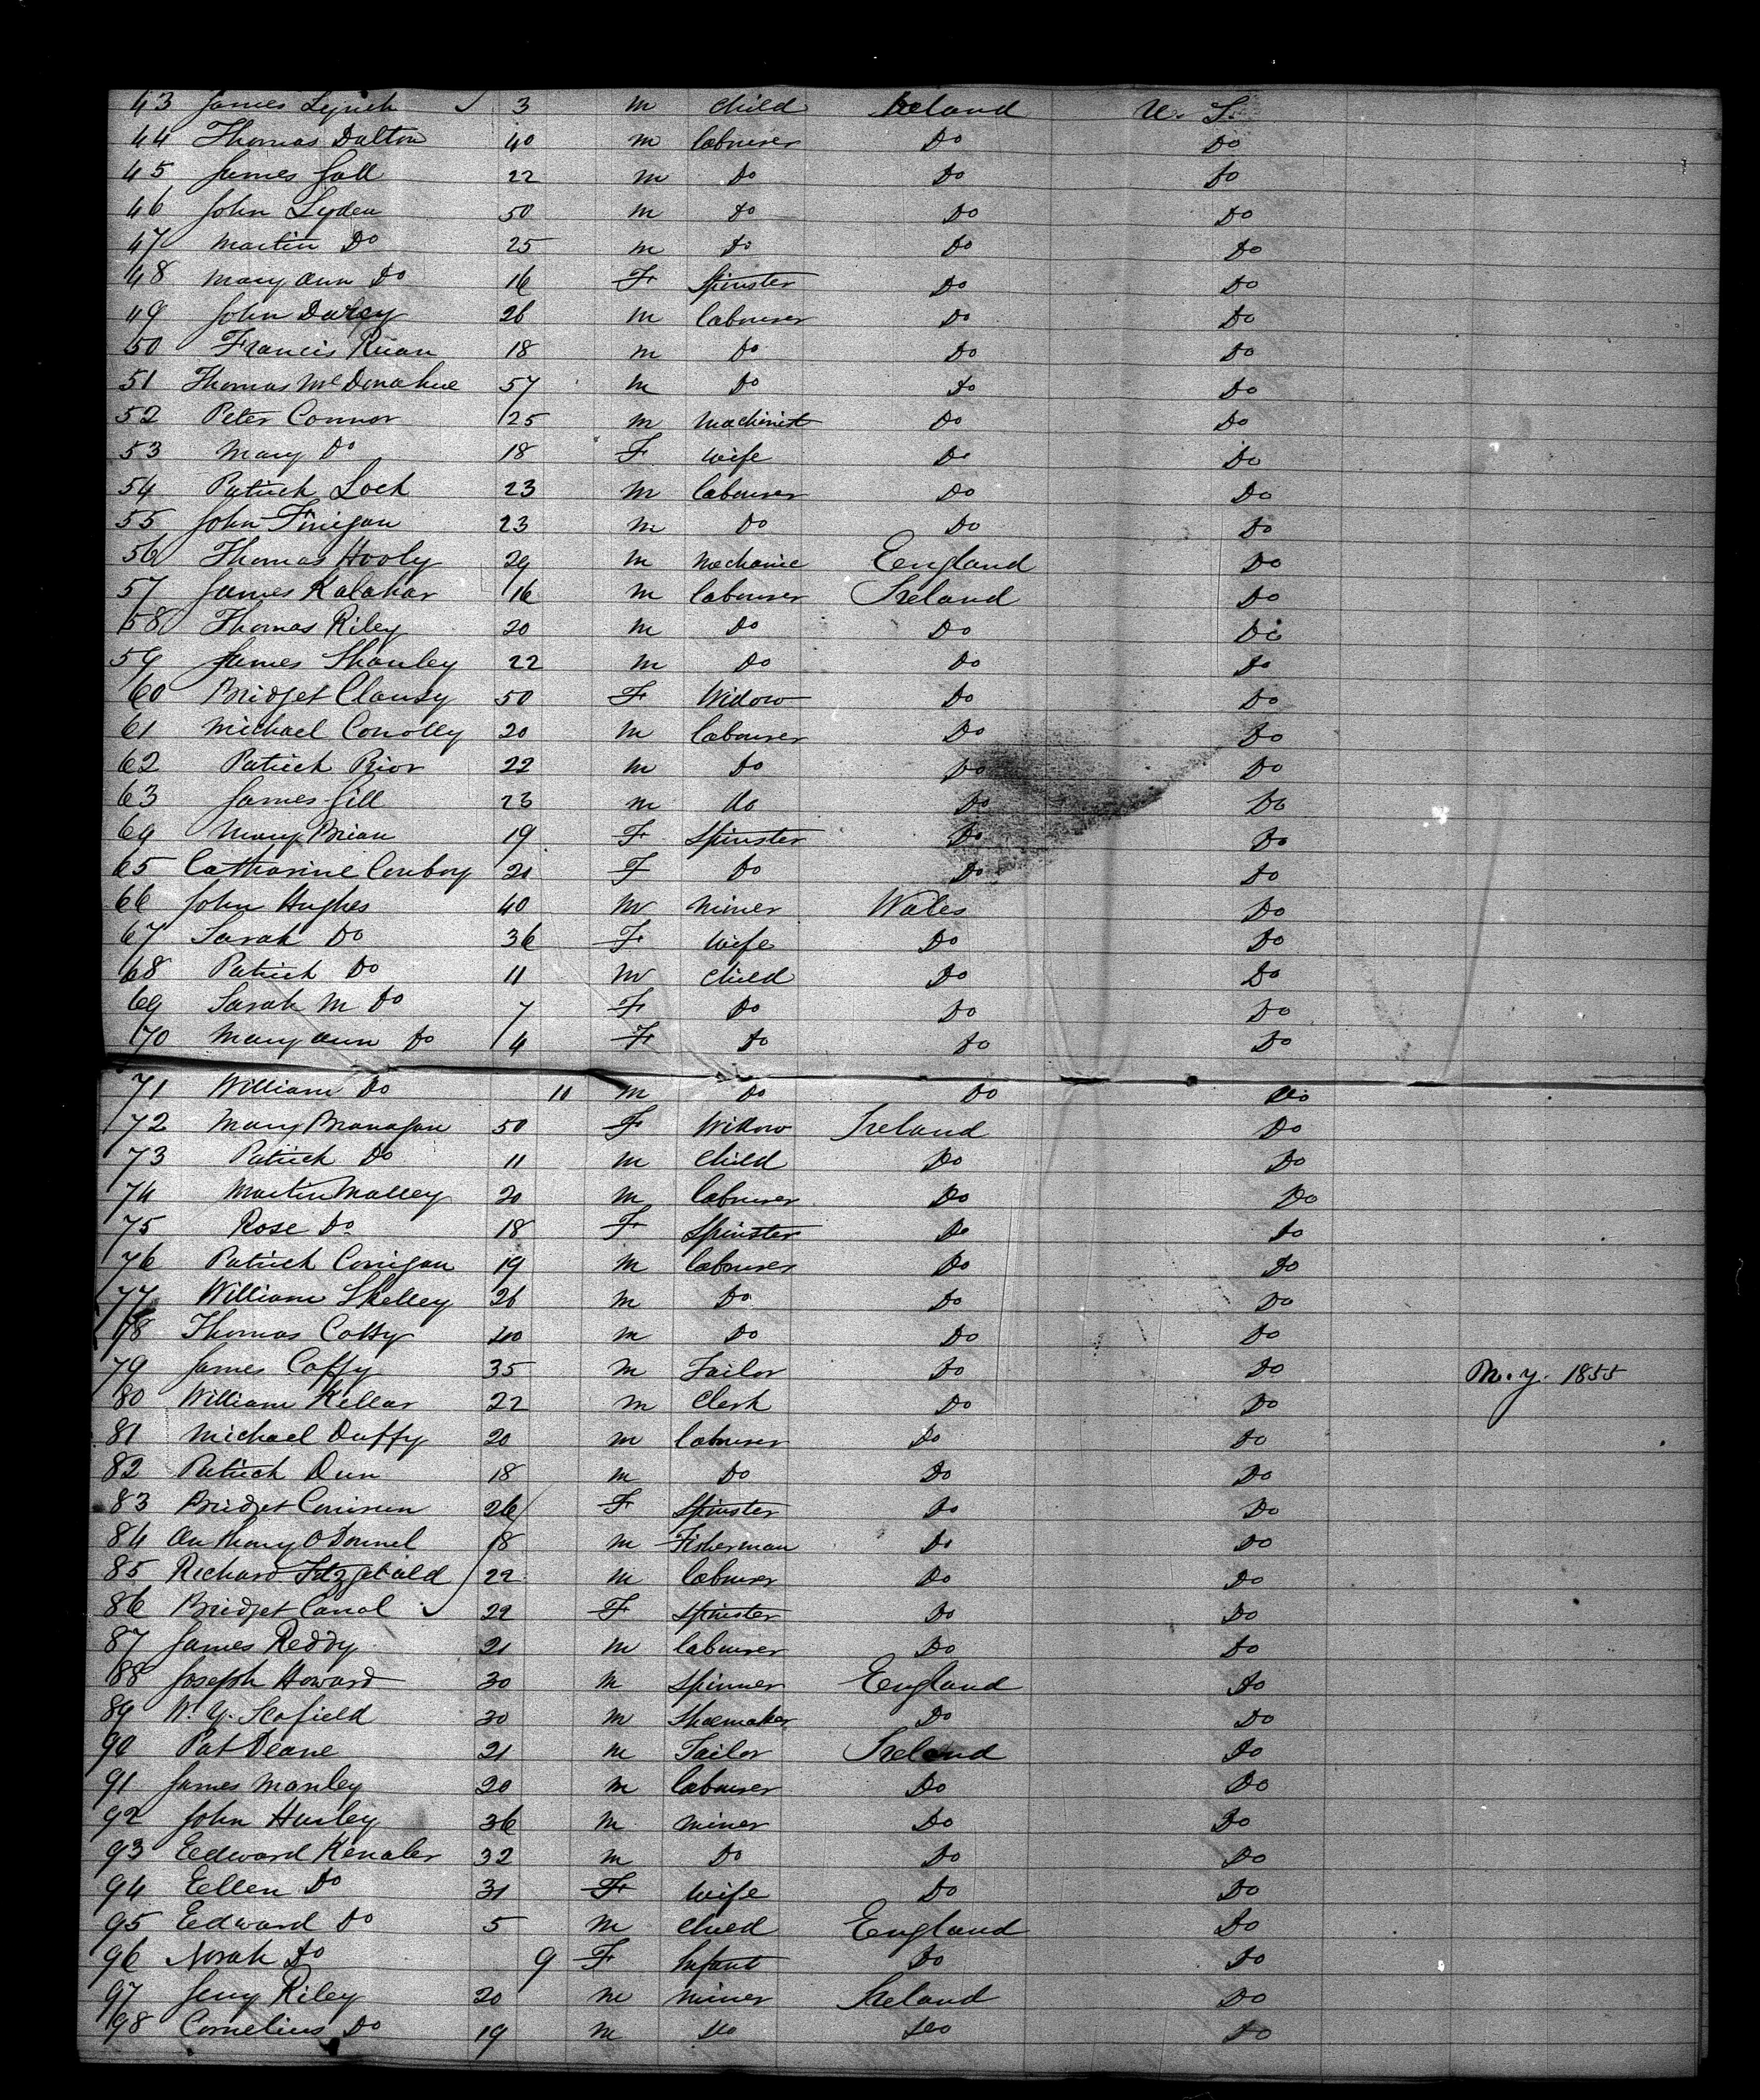 43 James Lynch 3 m child Ireland U. S.
44 Thomas Dalton 40 m labourer Do Do
45 James Gall 22 m Do Do Do
46 John Lyden 50 m Do Do Do
47 Martin Do 25 m Do Do Do
48 Mary Ann Do 16 F Spinster Do Do
49 John Darcy 26 m labourer Do Do
50 Francis Ruan 18 m Do Do Do
51 Thomas McDonahue 57 m Do Do Do
52 Peter Connor 25 m Machinist Do Do
53 Mary Do 18 F Wife Do Do
54 Patrick Loch 23 m labourer Do Do
55 John Finigan 23 m Do Do Do
56 Thomas Hooly 29 m Mechanic England Do
57 James Kalahar 16 m labourer Ireland Do
58 Thomas Riley 20 m Do Do Do
59 James Shanley 22 m Do Do Do
60 Bridget Clansy 50 F Widow Do Do
61 Michael Conolly 20 m labourer Do Do
62 Patrick Rior 22 m Do Do Do
63 James Gill 23 m do Do Do
64 Mary Brian 19 F Spinster Do Do
65 Catharine Conboy 21 F Do Do Do
66 John Hughes 40 m miner Wales Do
67 Sarah Do 36 F Wife Do Do
68 Patrick Do 11 m child Do Do
69 Sarah M Do 7 F Do Do Do
70 Mary Ann Do 4 F Do Do Do
71 William Do 11 m Do Do Do
72 Mary Branagan 50 F Widow Ireland Do
73 Patrick Do 11 m child Do Do
74 Martin Malley 20 m labourer Do Do
75 Rose Do 18 F Spinster Do Do
76 Patrick Corrigan 19 m labourer Do Do
77 William Skelley 26 m Do Do Do
78 Thomas m Do Do Do
79 James Coffy 35 m Tailor Do Do N.Y. 1855
80 William Kellar 22 m Clerk Do Do
81 Michael Duffy 20 m labourer Do Do
82 Patrick Dun 18 m Do Do Do
83 Bridget 26 F Spinster Do Do
84 Anthony O Donnel 18 m Fisherman Do Do
85 Richard Fitzgerald 22 m labourer Do Do
86 Bridget Carrol 22 F Spinster Do Do
87 James Reddy 21 m labourer Do Do
88 Joseph Howard 30 m Spinner England Do
89 W. Y. Scofield 30 m Shoemaker Do Do
90 Pat Deane 21 m Tailor Ireland Do
91 James Manley 20 m labourer Do Do
92 John Hurley 36 m miner Do Do
93 Eedward Kenaler 32 m Do Do Do
94 Eellen Do 31 F Wife Do Do
95 Eedward Do 5 m child England Do
96 Norah Do 9 F Infant Do Do
97 Jerry Riley 20 m miner Ireland Do
98 Cornelius Do 19 m Do Do Do